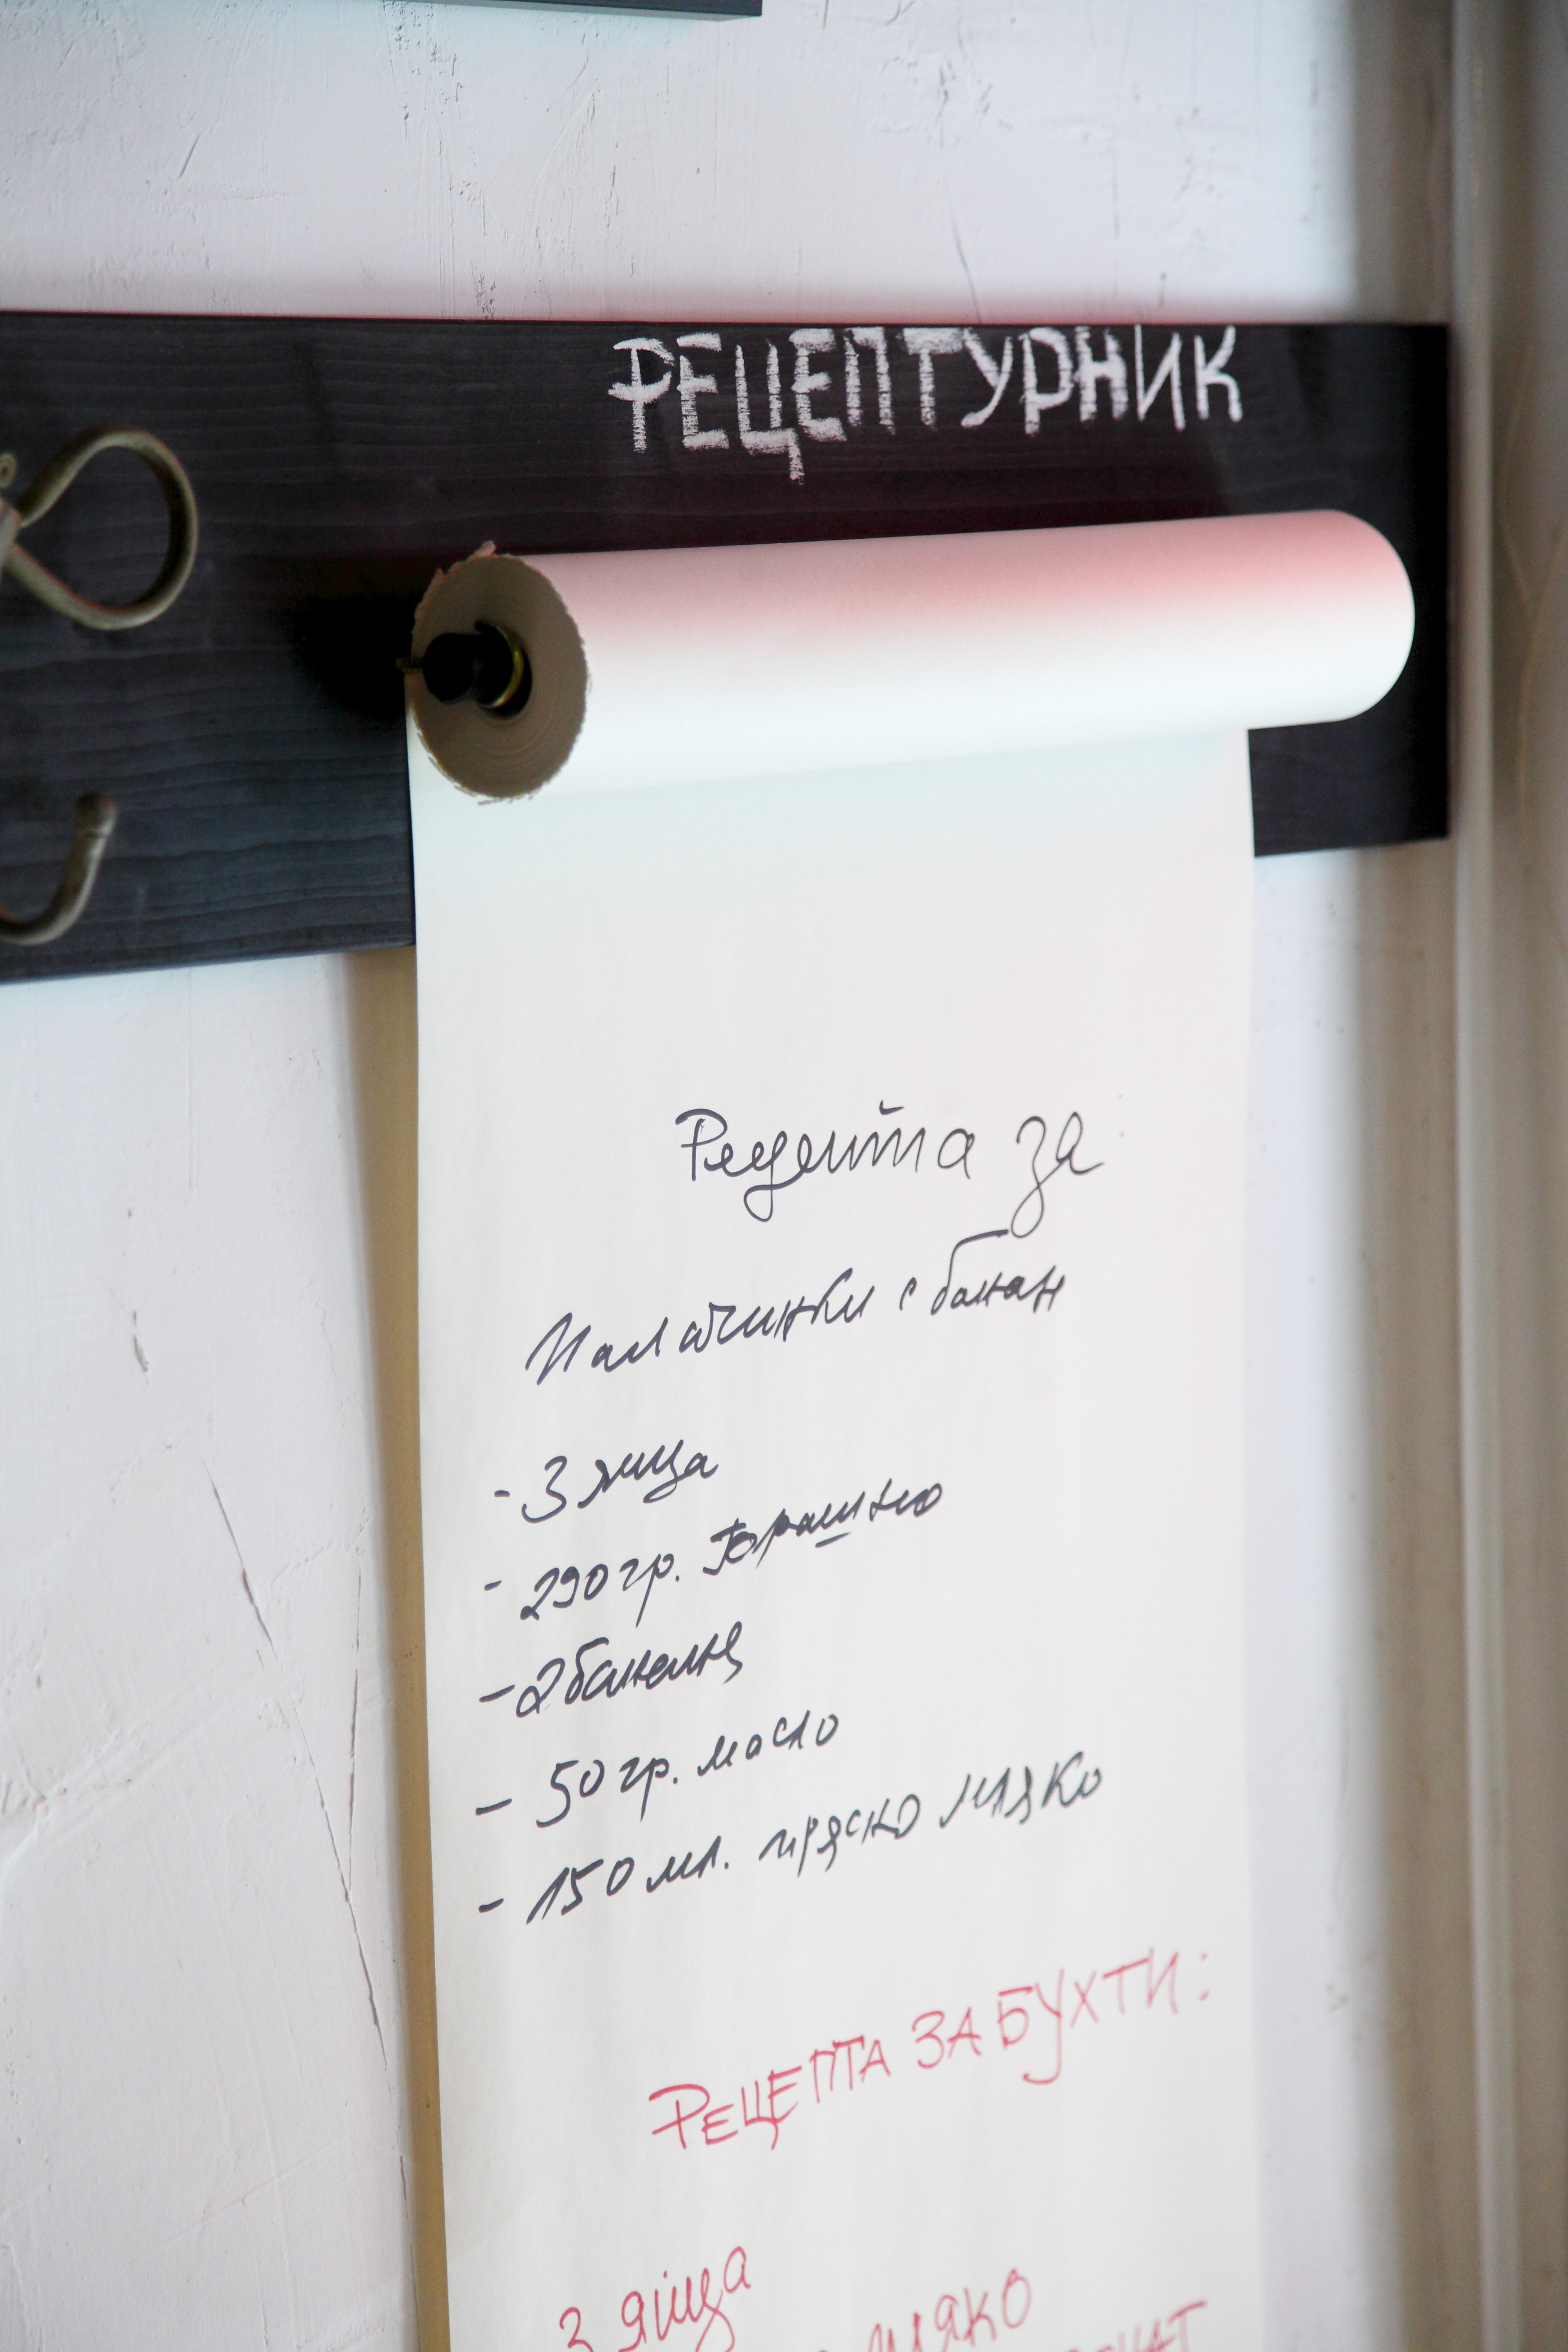 РЕЦЕПТУРНИК
Рецепта за:
Палачинки с банан
- 3 яйца
- 290 гр. брашно
- 2 банана
- 50 гр. масло
- 150 мл. прясно мляко
РЕЦЕПТА ЗА БУХТИ:
3 яйца
мляко